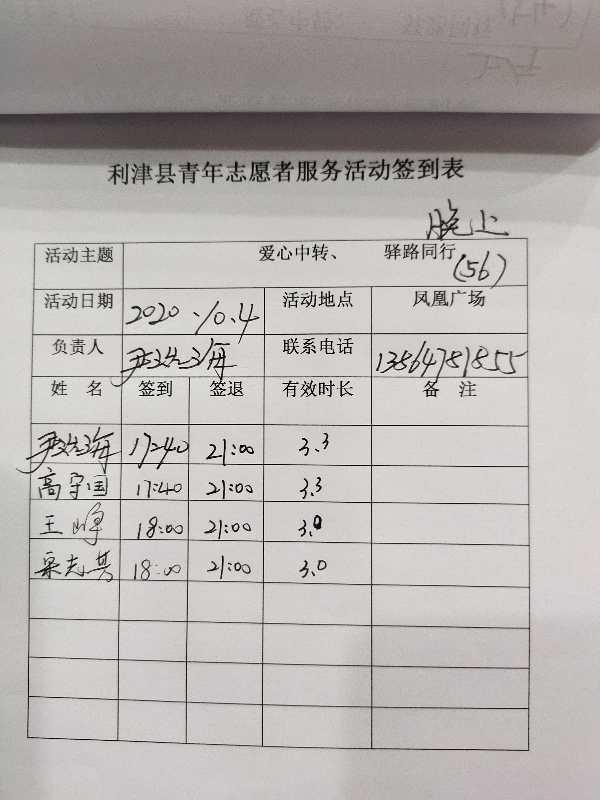 利津县青年志愿者服务活动签到表
晚上
活动主题 爱心中转、 驿路同行
(56)
活动日期 2020.10.4 活动地点 凤凰广场
负责人 联系电话 13864781855
姓 名 签到 签退 有效时长 备 注
17:40 21:00 3.3
高守国 17:40 21:00 3.3
王峰 18:00 21:00 3.0
18:00 21:00 3.0